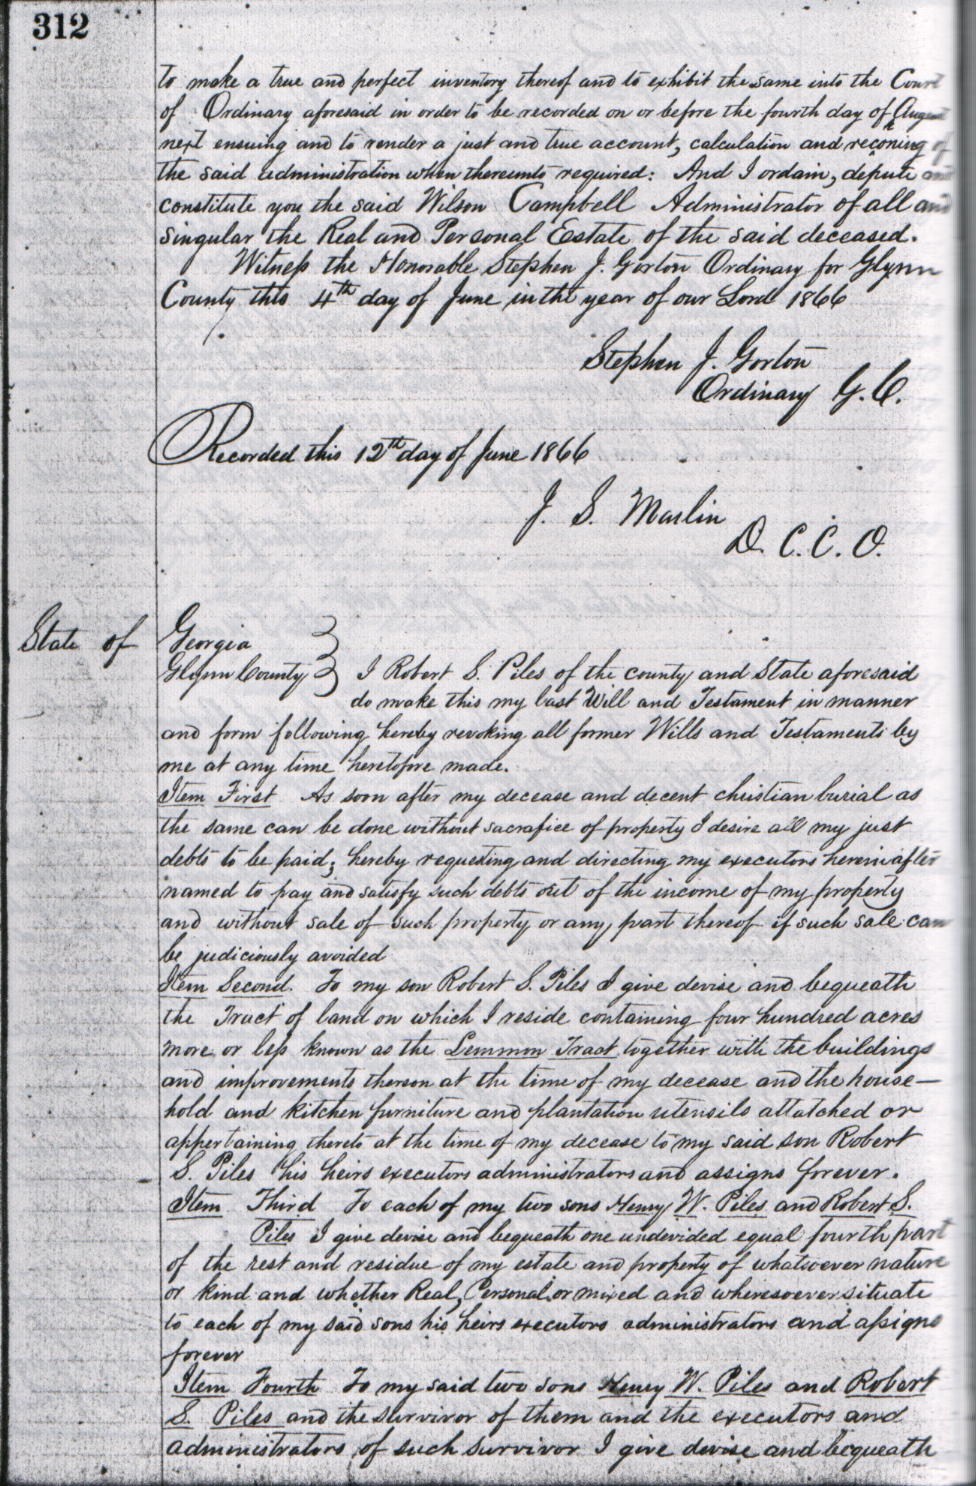 312
to make a true and perfect inventory thereof and to exhibit the same into the Court
of Ordinary aforesaid in order to be recorded on or before the fourth day of August
next ensuing and to render a just and true account, calculation and reconing of
the said administration when thereunto required: And I ordain, depute and
constitute you the said Wilson Campbell Administrator of all and
singular the Real and Personal Estate of the said deceased.
Witness the Honorable Stephen J. Gorton Ordinary for Glynn
County this 4th day of June in the year of our Lord 1866
Stephen J. Gorton
Ordinary G. C.
Recorded this 12th day of June 1866
J. S. Marlin
D. C. C. O.
State of Georgia
Glynn County } I Robert S. Piles of the county and State aforesaid
do make this my last Will and Testament in manner
and form following hereby revoking all former Wills and Testaments by
me at any time heretofore made.
Item First As soon after my decease and decent christian burial as
the same can be done without sacrafice of property I desire all my just
debts to be paid; hereby requesting and directing my executors hereinafter
named to pay and satisfy such debts out of the income of my property
and without sale of such property or any part thereof if such sale can
be judiciously avoided
Item Second. To my son Robert S. Piles I give devise and bequeath
the Tract of land on which I reside containing four hundred acres
more or less known as the Lemmon Tract together with the buildings
and improvements thereon at the time of my decease and the house—
hold and kitchen furniture and plantation utensils attatched or
appertaining thereto at the time of my decease to my said son Robert
S. Piles his heirs executors administrators and assigns forever.
Item Third To each of my two sons Henry W. Piles and Robert S.
Piles I give devise and bequeath one undivided equal fourth part
of the rest and residue of my estate and property of whatsoever nature
or kind and whether Real, Personal or mixed and wheresoever situate
to each of my said sons his heirs executors administrators and assigns
forever
Item Fourth To my said two sons Henry W. Piles and Robert
S. Piles and the survivor of them and the executors and
administrators of such survivor I give devise and bequeath